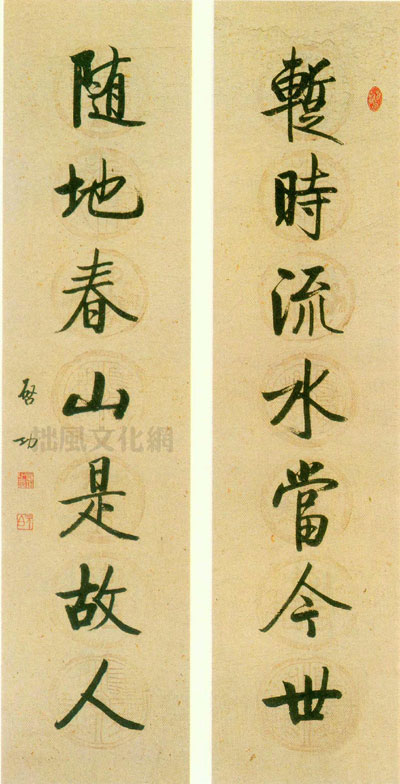 暫時流水當今世
随地春山是故人
啓功
拙風文化網